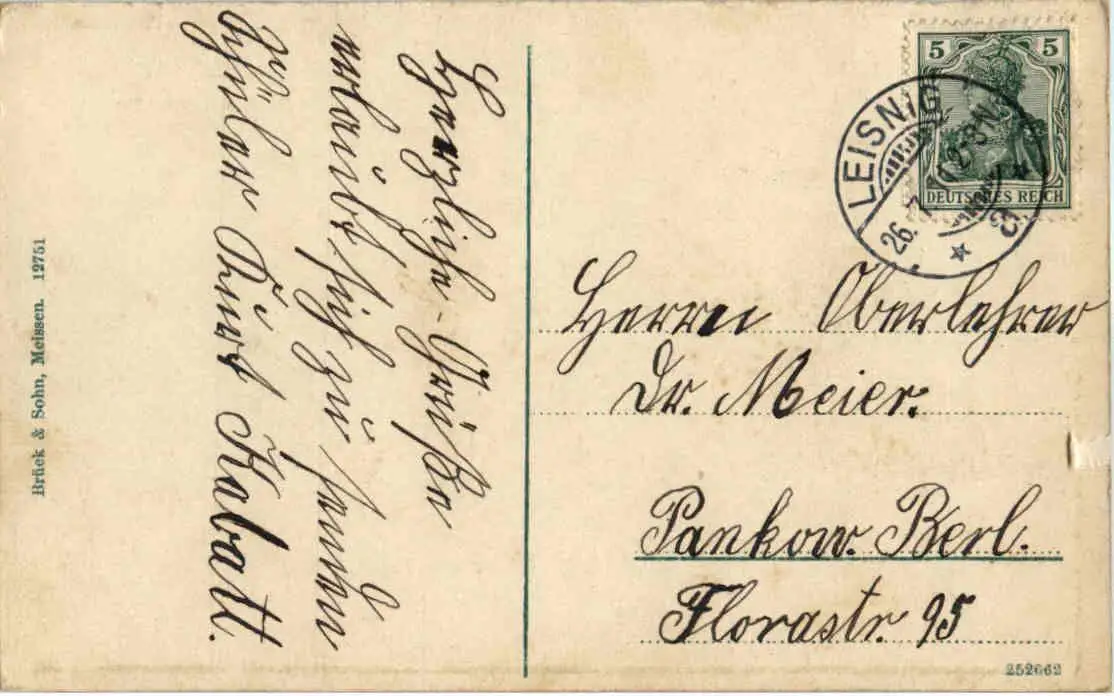 Herzliche Grüße
erlaubt sich zu senden
Ihr Schüler Kurt Kabatt.
Brück & Sohn, Meissen. 12751
5 5
DEUTSCHES REICH
LEISNIG
26.
Herrn Oberlehrer
Dr. Meier.
Pankow. Berl.
Florastr. 95
252662